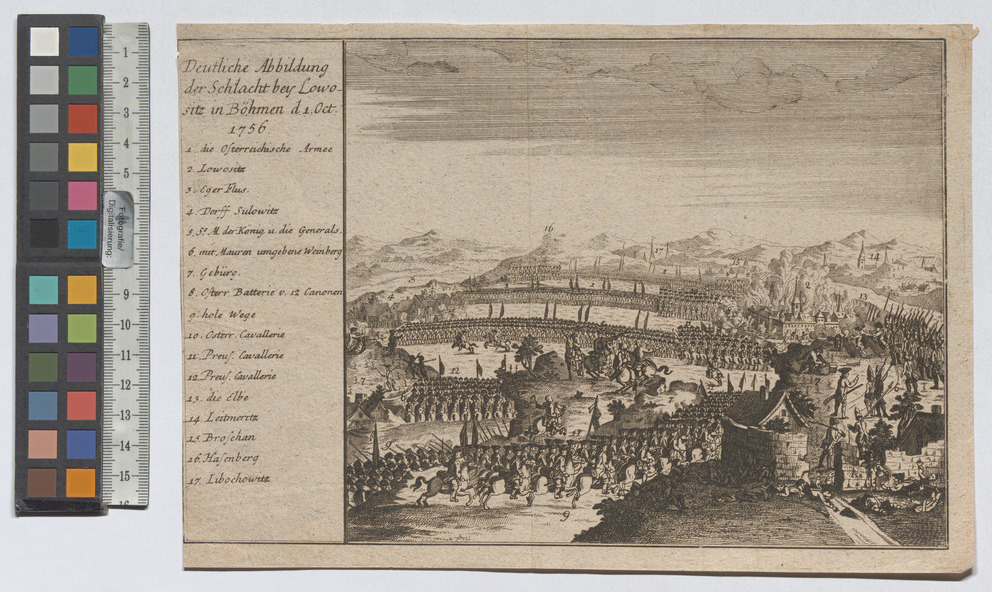 Deutliche Abbildung
der Schlacht bey Lowo-
sitz in Böhmen d 1. Oct.
1756
1. die Osterreichische Armee
2. Lowositz
3. Eger Flus.
4. Dorff Sulowitz
5. Sr. M. der König u. die Generals.
6. mit Mauren umgebene Weinberg
7. Gebürg.
8. Osterr Batterie v. 12 Canonen
9. hole Wege
10. Osterr. Cavallerie
11. Preus. Cavallerie
12. Preus. Cavallerie
13. die Elbe
14. Leitmeritz
15. Broschan
16. Hasenberg
17. Libochowitz
16
17
15
14
3
1
2
13
4
17
12
9
Fotografie/
Digitalisierung:
1
2
3
4
5
9
10
11
12
13
14
15